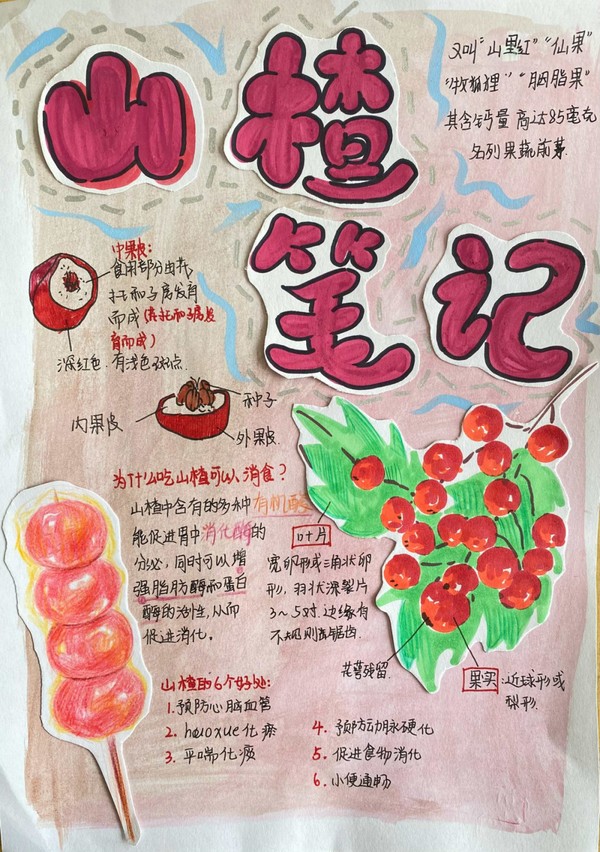 山楂
笔记
又叫“山里红”“仙果”
“牧狐狸”“胭脂果”
其含钙量高达85毫克
名列果蔬前茅.
中果皮:
食用部分由花
托和子房发育
而成(花托和子房发
育而成)
深红色.有浅色斑点.
种子
内果皮
外果皮
为什么吃山楂可以消食?
山楂中含有的多种有机酸
能促进胃中消化酶的
分泌,同时可以增
强脂肪酶和蛋白
酶的活性,从而
促进消化。
叶片
宽卵形或三角状卵
形,羽状深裂片
3~5对.边缘有
不规则重锯齿.
花萼残留
果实:近球形或
梨形.
山楂的6个好处:
1.预防心脑血管
2.huoxue化瘀
3.平喘化痰
4.预防动脉硬化
5.促进食物消化
6.小便通畅